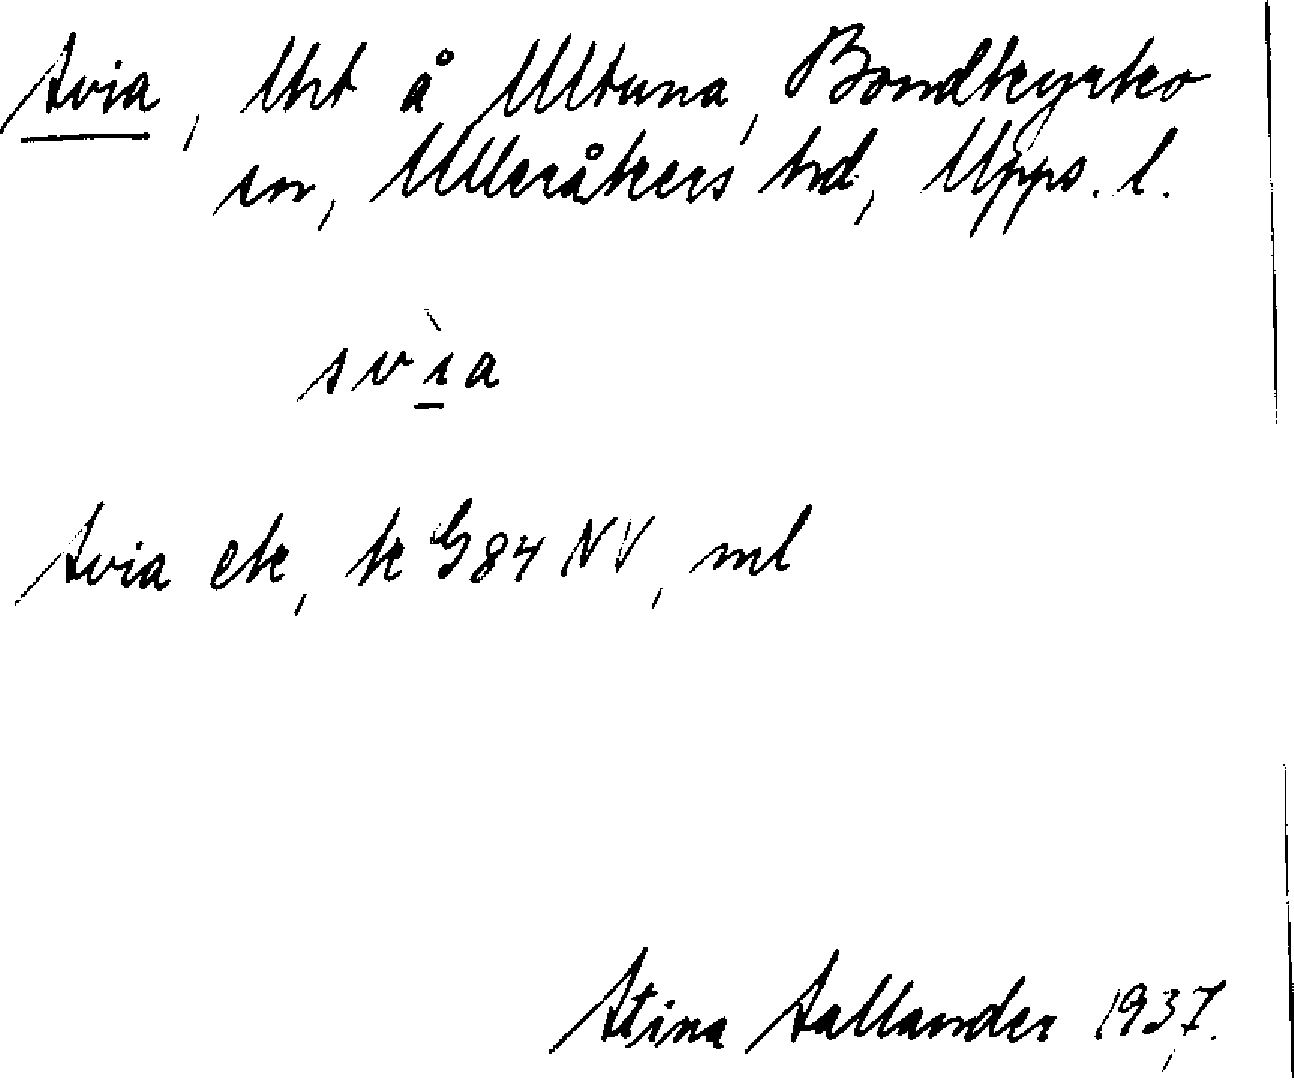 Svia, lht å Ultuna, Bondkyrko
sn, Ulleråkers hd, Upps. l.
svìa
Svia ek, k G84 NV, ml
Stina Sallander 1937.